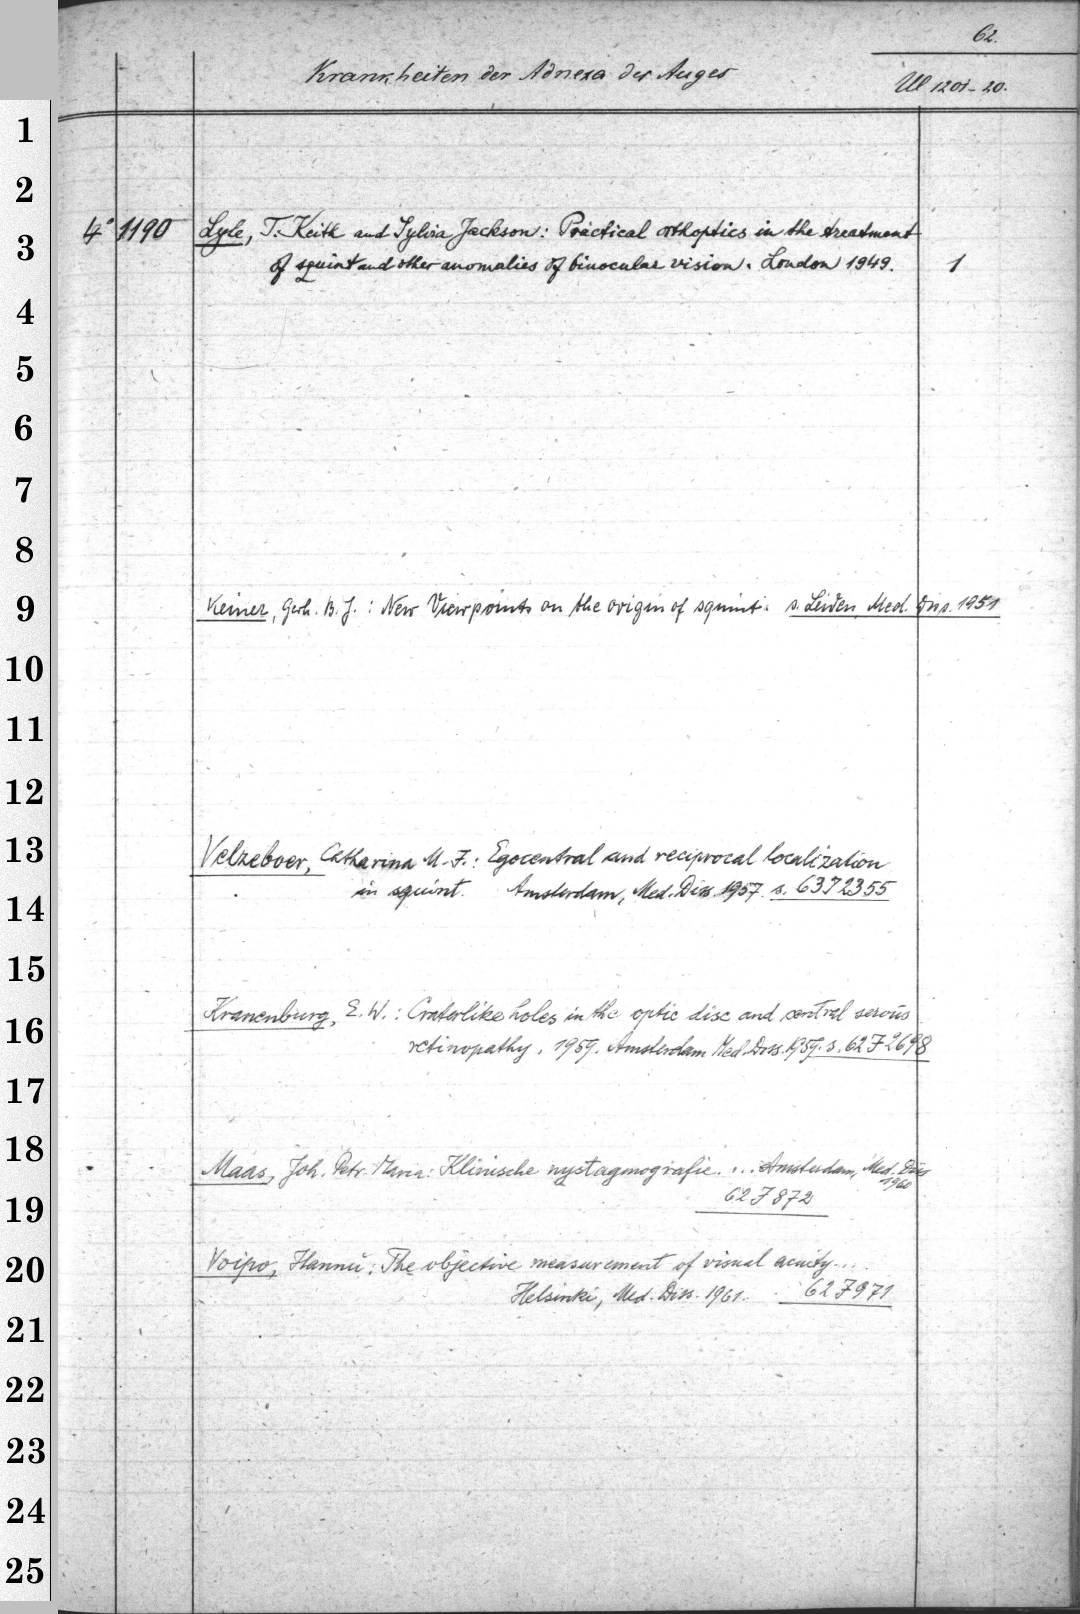 62.
Krankheiten der Adnexa des Auges
Ul 1201-20.
1
2
4° 1190 Lyle, T. Keith and Sylvia Jackson: Practical orthoptics in the treatment
3
of squint and other anomalies of binocular vision. London 1949. 1
4
5
6
7
8
9 Keiner, Gerh. B. J.: New Viewpoints on the origin of squint. s. Leiden, Med. Diss. 1951
10
11
12
13 Velzeboer, Catharina M. J.: Egocentral and reciprocal localization
in squint. Amsterdam, Med. Diss. 1957. s. 6372355
14
15
Kranenburg, E. W.: Craterlike holes in the optic disc and central serous
16
retinopathy. 1959. Amsterdam Med. Diss. 1959. s. 62 7 2698
17
18
Maas, Joh. Petr. Maria: Klinische nystagmografie. ... Amsterdam, Med. Diss
1960
19 62 7 872
Voipio, Hannu: The objective measurement of visual acuity....
20
Helsinki, Med. Diss. 1961. 62 7 971
21
22
23
24
25